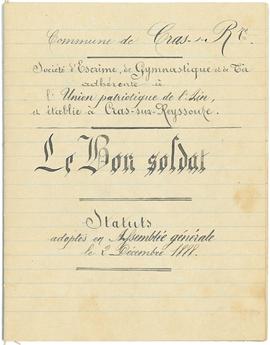 Commune de Cras-s-Rze
Société d'Escrime, de Gymnastique et de Tir
adhérente à
l'Union patriotique de l'Ain,
et établie à Cras-sur-Reyssouze.
Le Bon soldat
Statuts
adoptés en Assemblée générale
le 2 Décembre 1888.